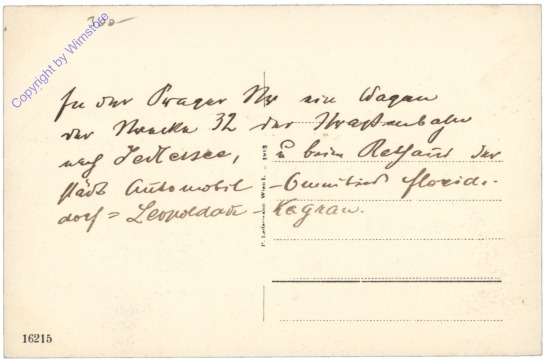 300.-
Copyright by Wimstore
In der Prager Str ein Wagen
der Strecke 32 der Straßenbahn
nach Jedlersee, u beim Rathaus der
städt Automobil-Omnibus Florids-
dorf = Leopoldau - Kagran.
Wien I.
16215